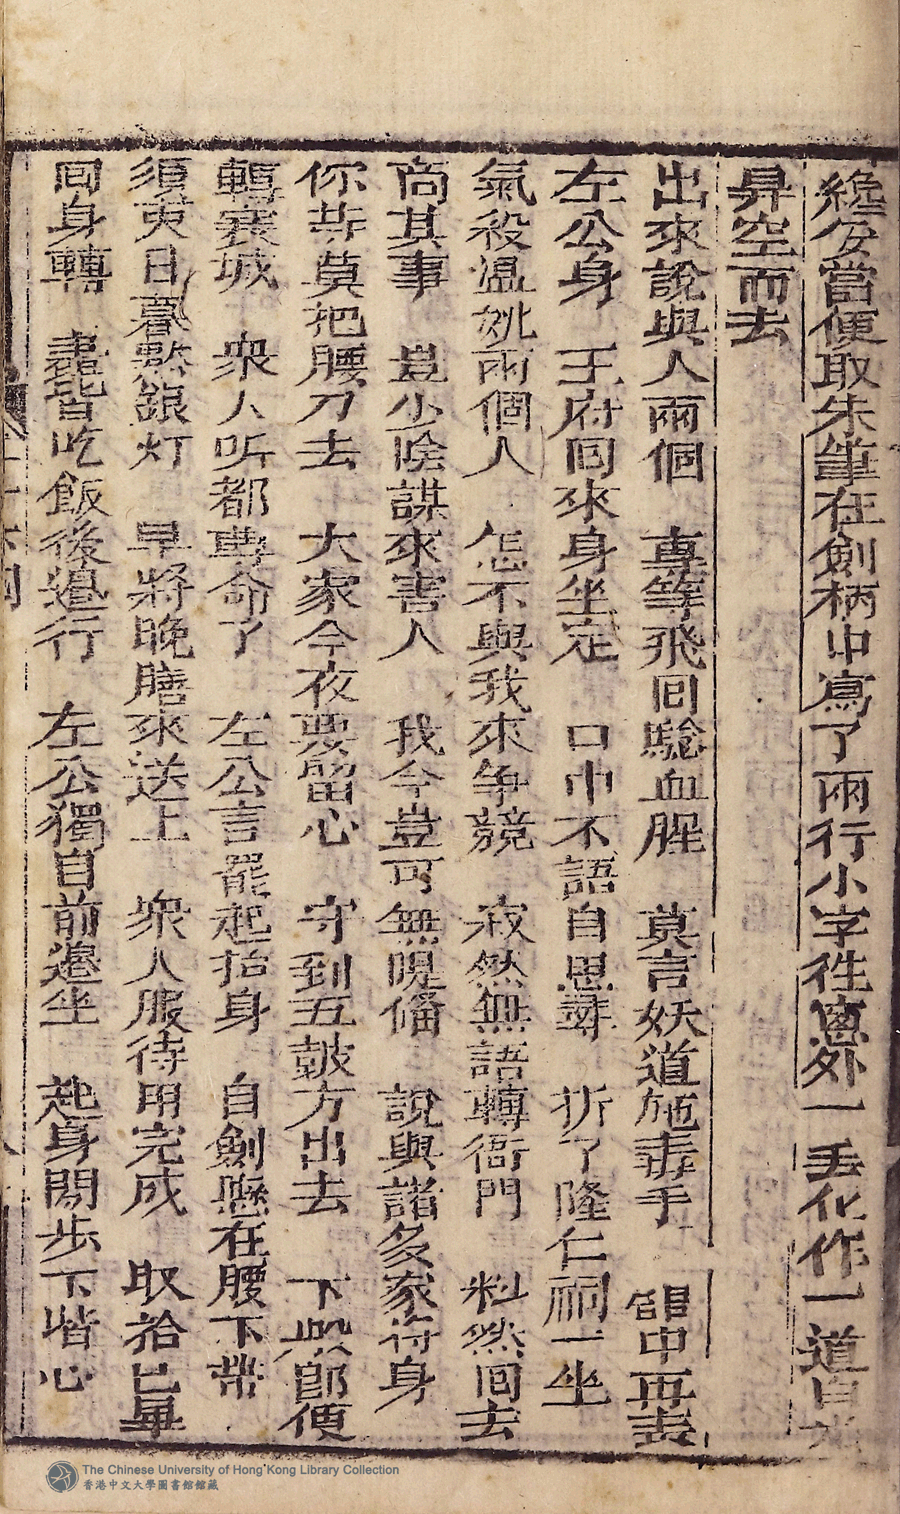 纔安當便取朱筆在劍柄中寫了兩行小字徃窻外一丢化作一道白光
昇空而去
出來說與人兩個　專等飛回驗血腥　莫言妖道施毒手　館中再表
左公身　王府回來身坐定　口中不語自思尋　折了隆仁祠一坐
氣殺溫姚兩個人　怎不與我來争競　寂然無語轉衙門　料然回去
商其事　豈少陰謀來害人　我今豈可無隄備　說與諸多家将身
你其莫把腰刀去　大家今夜要留心　守到五鼓方出去　下處郎便
轉襄城　衆人听都尊命了　左公言罷起抬身　自劍懸在腰下帶
須臾日暮點銀灯　早將晚膳來送上　衆人服待用完成　收拾已畢
回身轉　盡皆吃飯後邉行　左公獨自前邉坐　起身閒步下堦心
十六回
The Chinese University of Hong Kong Library Collection
香港中文大學圖書館館藏